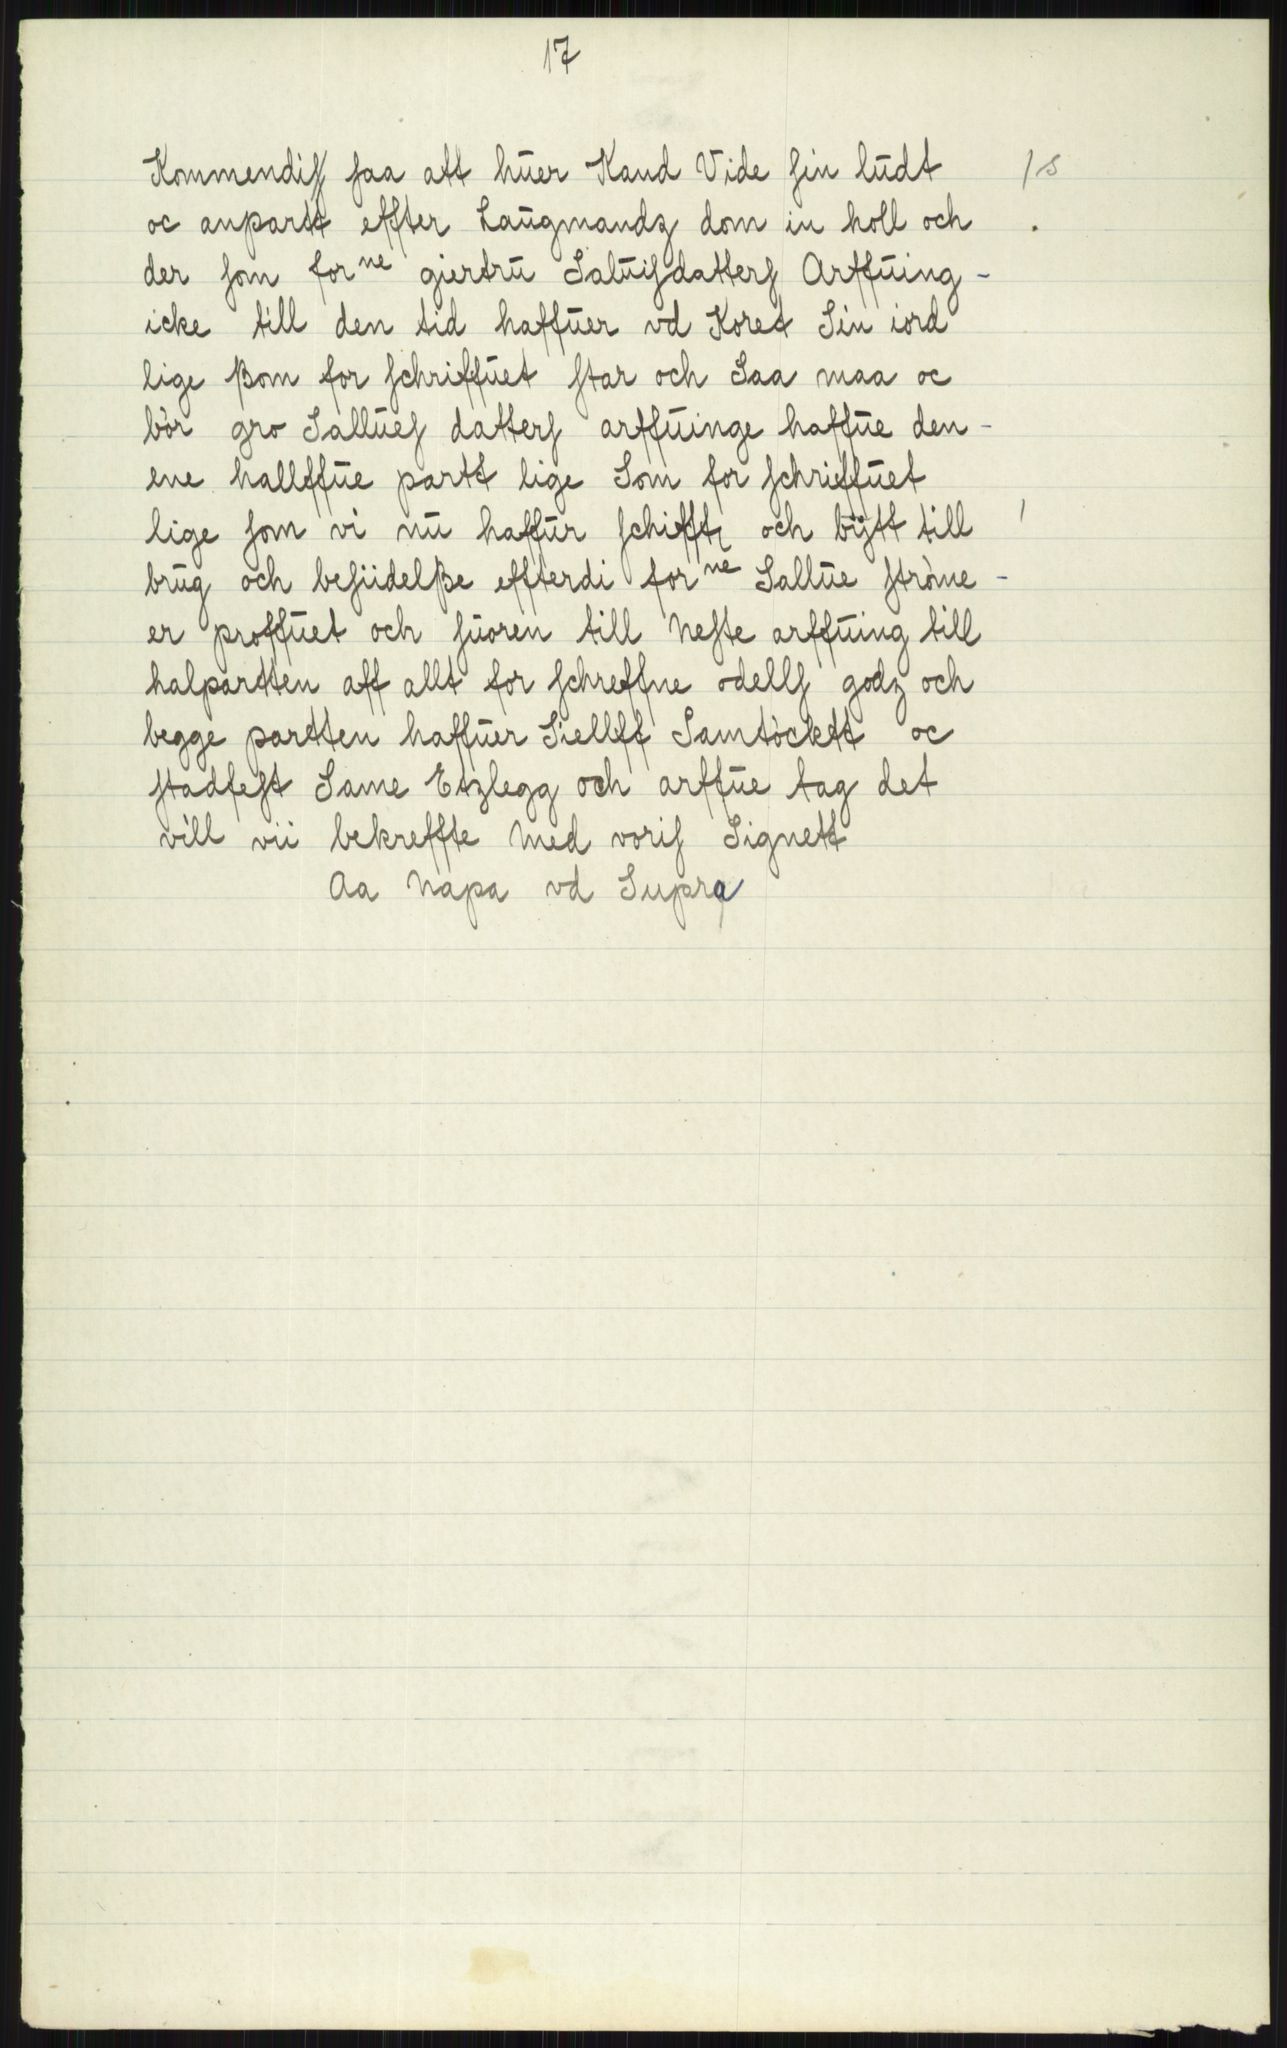 17
Kommendiſ ſaa att hūer Kand Vide ſin lūdt /s
oc anpartt effter Laūgmandz dom in holl och .
der ſom forⁿᵉ giertrū Salūiſdatterſ Arffūing -
icke till den tid haffūer vd Koret Sin iord
lige ßom for ſchriffūet ſtar och Saa maa oc
bör gro Sallūeſ datterſ arffūinge haffūe den -
ene hallffūe partt lige Som for ſchrieffūet
lige ſom vi nū haffūr ſchifft och bÿtt till /
brūg och beſiidelße effterdi forⁿᵉ Sallūe ſtröme -
er proffūet och ſūoren till Neſte arffūing till
halpartten aff allt for ſchreffne odellſ godz och
begge partten haffūer Siellff Samtöcktt oc
ſtadfeſt Same Etzlegg och arffūe tag det
vill vii bekreffte Med voriſ Signett
Aa Napa vd Supra